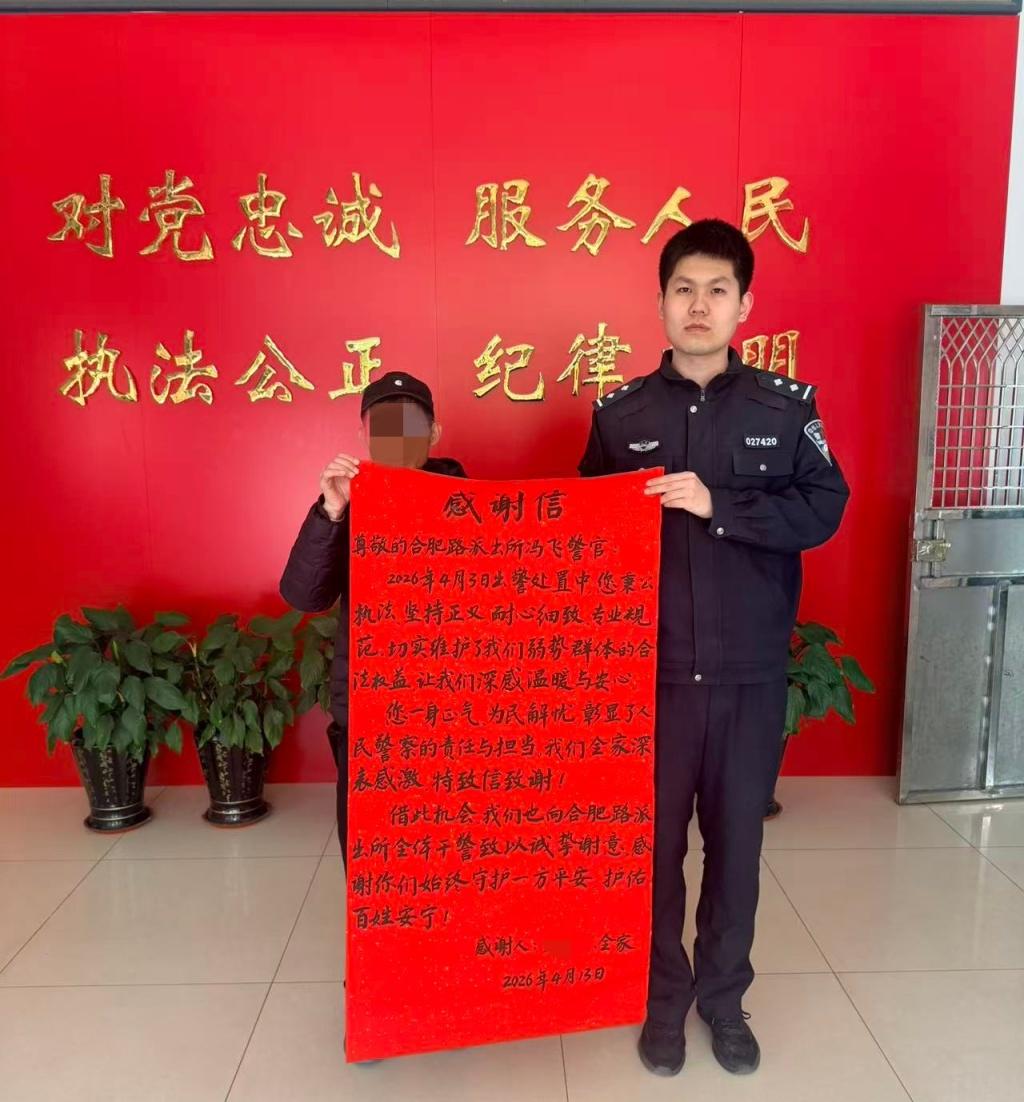 对党忠诚 服务人民
执法公正 纪律 明
027420
感谢信
尊敬的合肥路派出所冯飞警官:
2026年4月3日出警处置中,您秉公
执法、坚持正义、耐心细致、专业规
范,切实维护了我们弱势群体的合
法权益,让我们深感温暖与安心。
您一身正气、为民解忧,彰显了人
民警察的责任与担当,我们全家深
表感激,特致信致谢!
借此机会,我们也向合肥路派
出所全体干警致以诚挚谢意,感
谢你们始终守护一方平安、护佑
百姓安宁!
感谢人: 全家
2026年4月13日